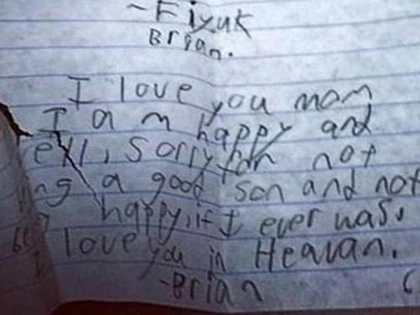 -Fiyuk
Brian.
I love you mom
I am happy and
ell, sorry for not
ng a good son and not
happy, if I ever was,
I love you in Heavan.
-Brian